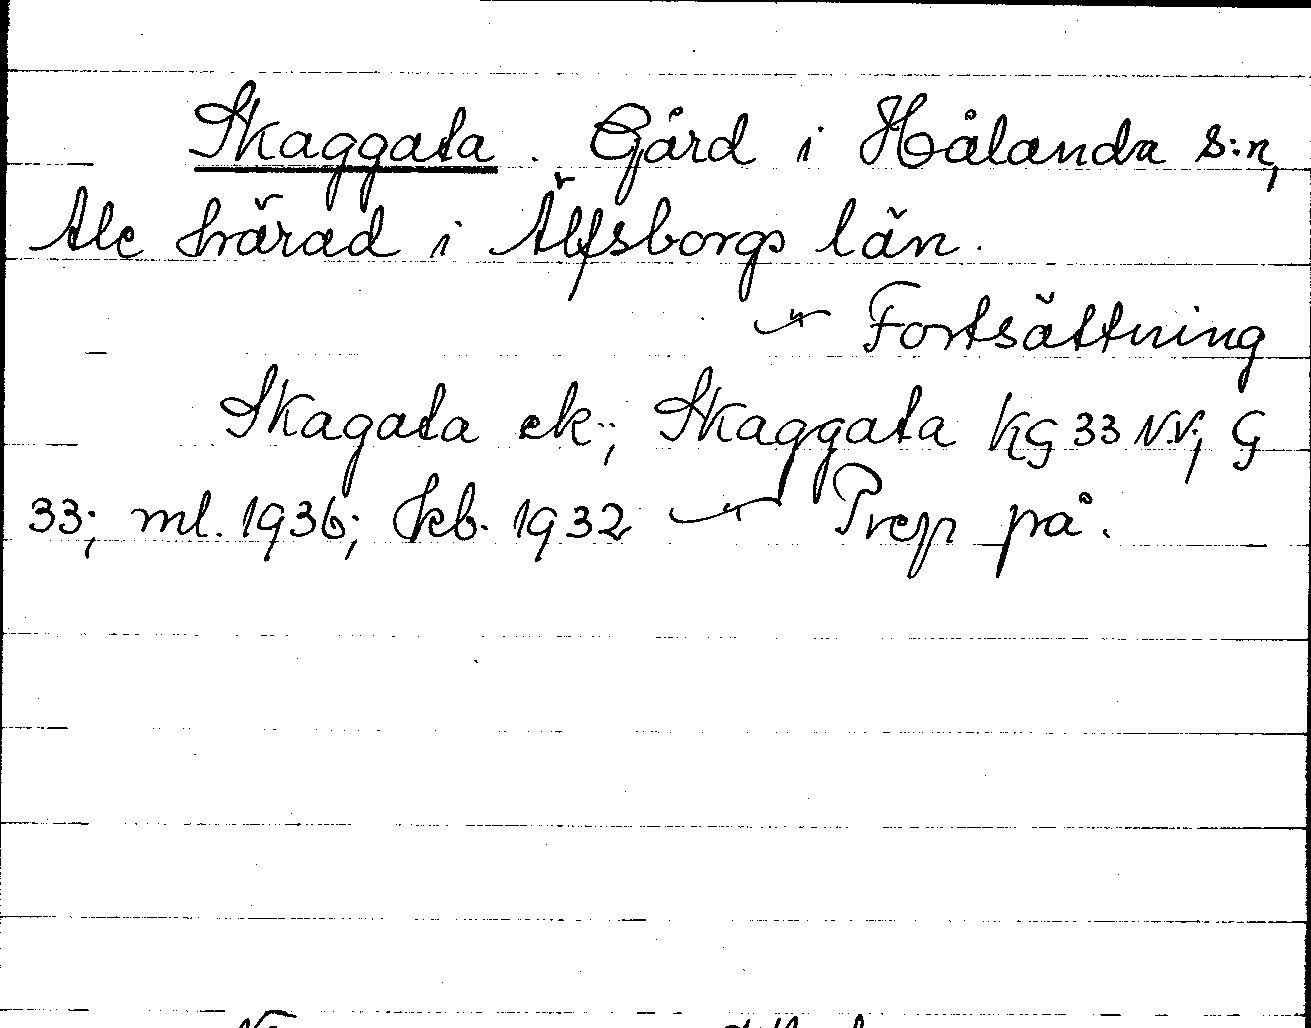 Skaggata. Gård i Hålanda s:n,
Ale härad i Älfsborgs län.
Fortsättning
Skagata ek.; Skaggata KG 33 N.V.; G
33; ml. 1936; Jkb. 1932 Prep på.